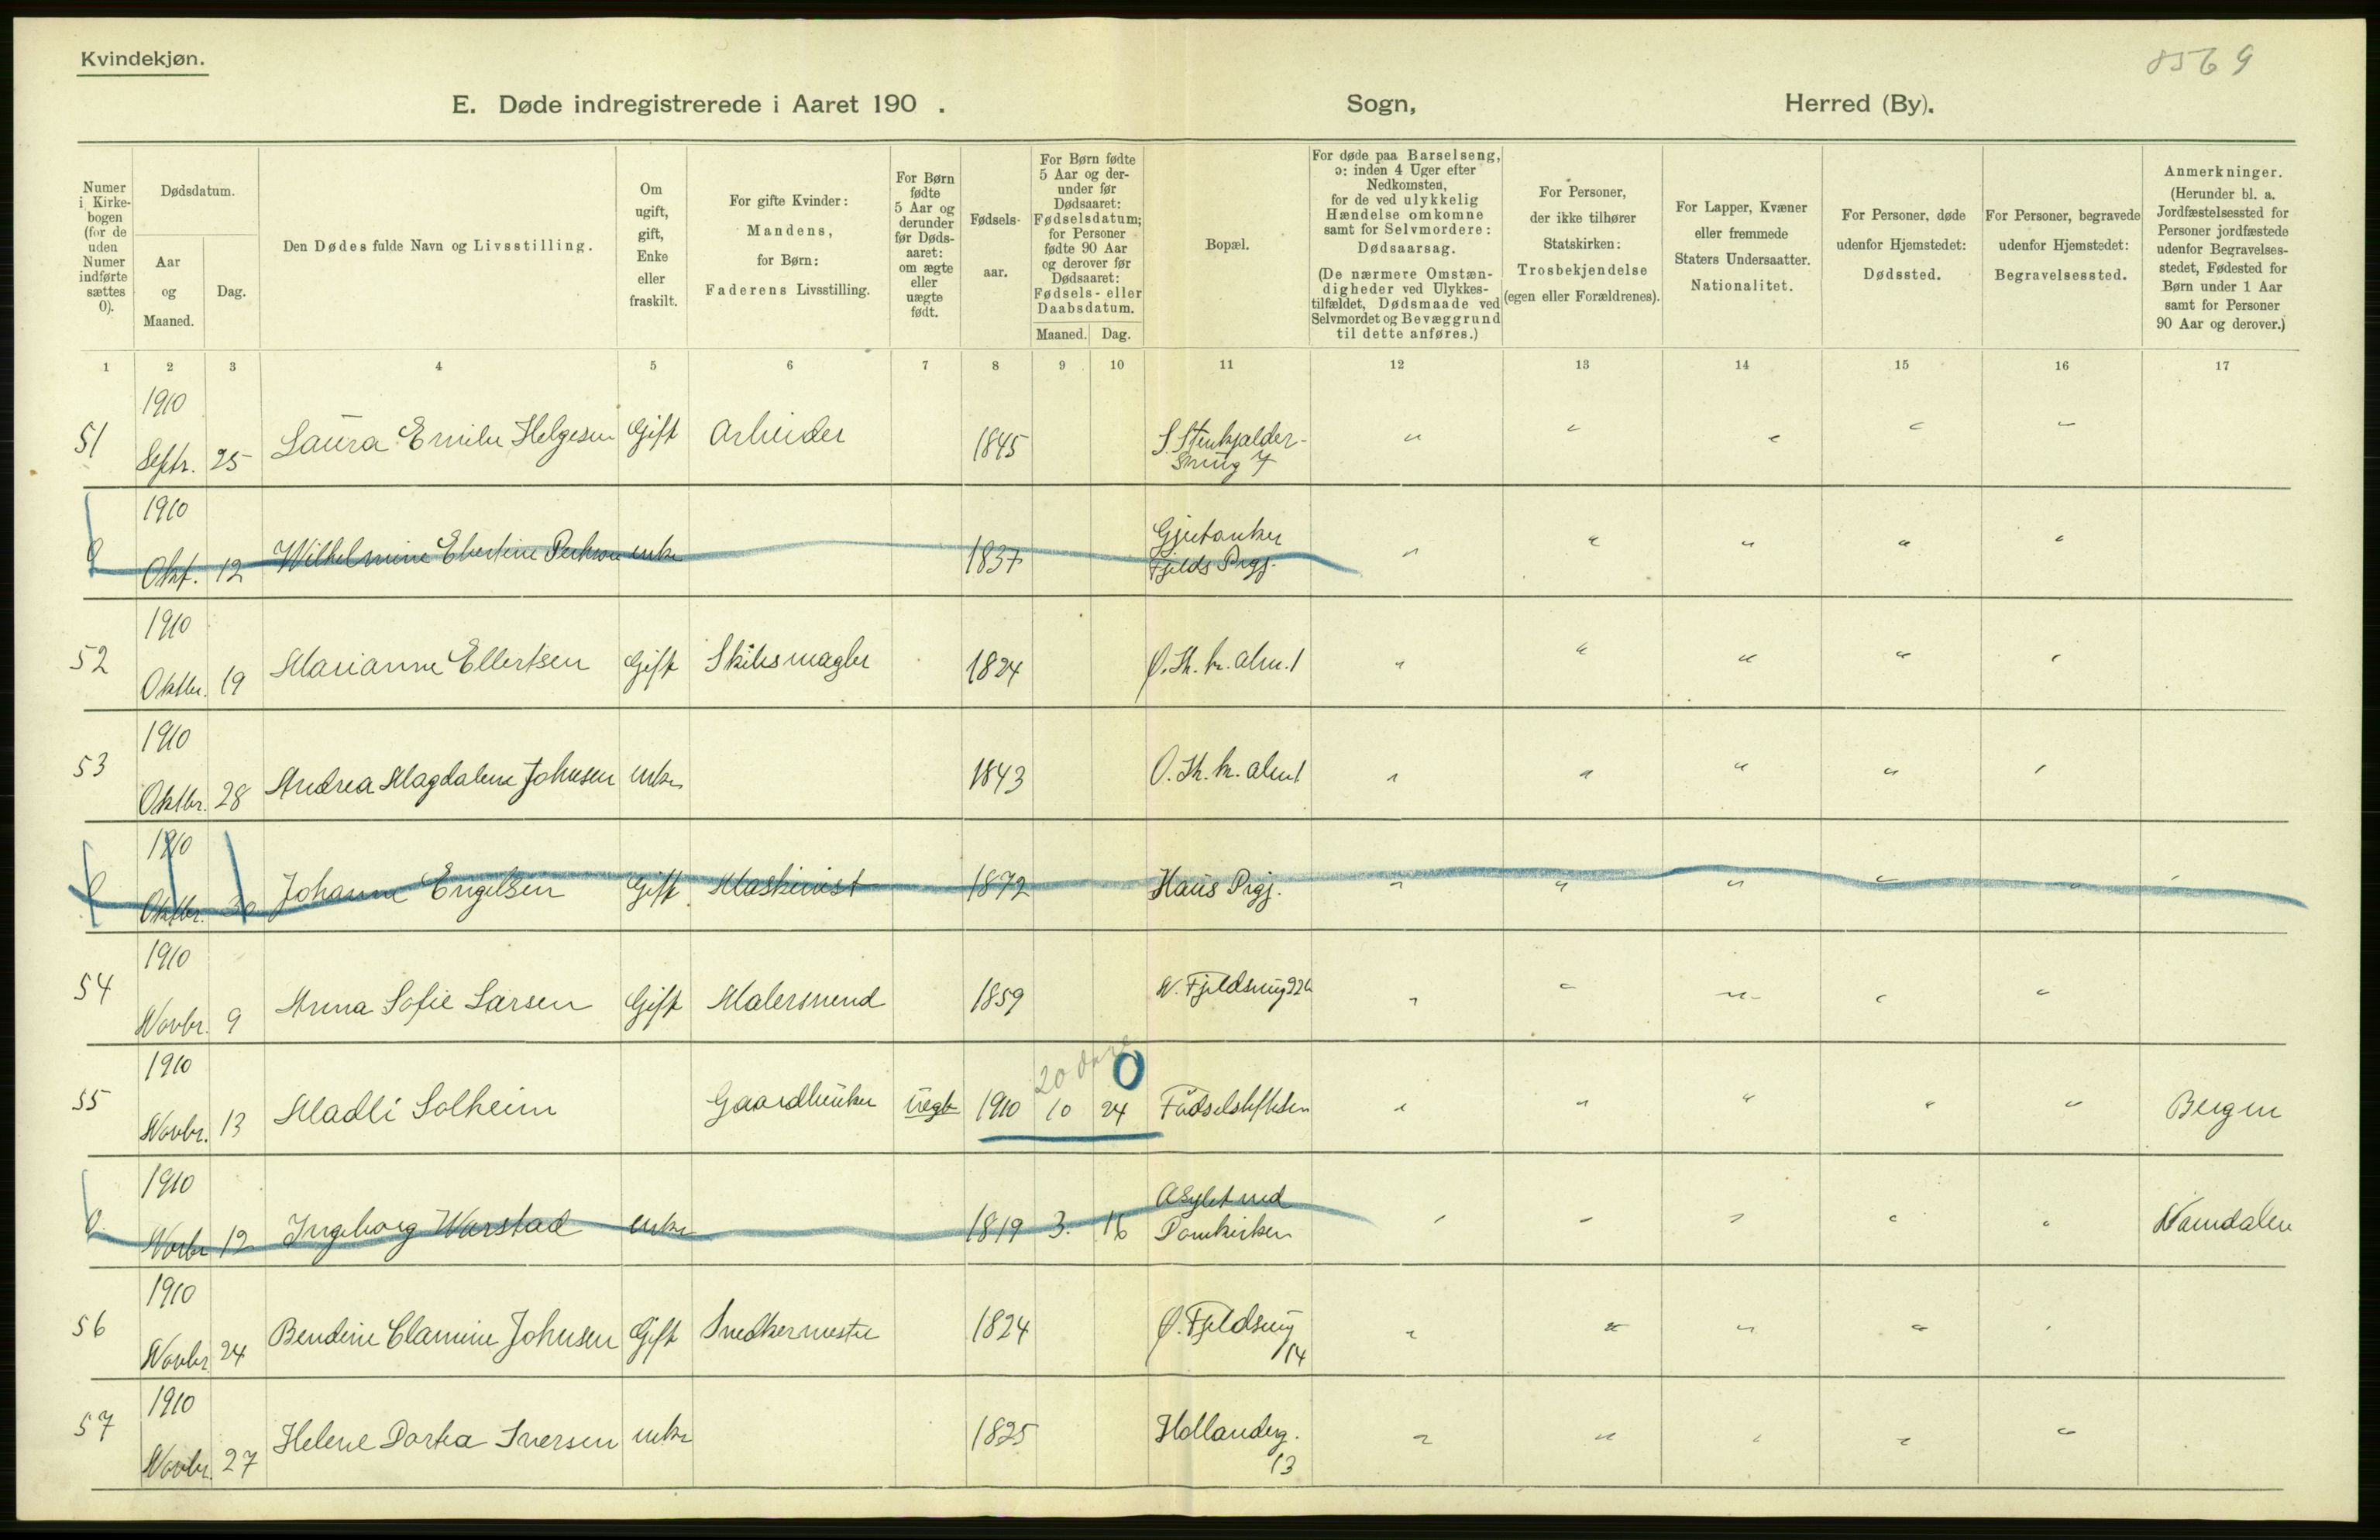 Kvindekjøn.
8569
E. Døde indregistrerede i Aaret 190 . Sogn, Herred (By).
Numer i Kirkebogen (for de uden Numer indførte sættes 0).
Dødsdatum.
Aar og Maaned.
Dag.
Den Dødes fulde Navn og Livsstilling.
Om ugift, gift, Enke eller fraskilt.
For gifte Kvinder: Mandens, for Børn: Faderens Livsstilling.
For Børn fødte 5 Aar og derunder før Dødsaaret: om ægte eller uægte født.
Fødselsaar.
For Børn fødte 5 Aar og derunder før Dødsaaret: Fødselsdatum; for Personer fødte 90 Aar og derover før Dødsaaret: Fødsels- eller Daabsdatum.
Maaned. Dag.
Bopæl.
For døde paa Barselseng, ɔ: inden 4 Uger efter Nedkomsten, for de ved ulykkelig Hændelse omkomne samt for Selvmordere: Dødsaarsag.
(De nærmere Omstændigheder ved Ulykkestilfældet, Dødsmaade ved Selvmordet og Bevæggrund til dette anføres.)
For Personer, der ikke tilhører Statskirken: Trosbekjendelse (egen eller Forældrenes).
For Lapper, Kvæner eller fremmede Staters Undersaatter. Nationalitet.
For Personer, døde udenfor Hjemstedet: Dødssted.
For Personer, begravede udenfor Hjemstedet: Begravelsessted.
Anmerkninger.
(Herunder bl. a. Jordfæstelsessted for Personer jordfæstede udenfor Begravelsesstedet, Fødested for Børn under 1 Aar samt for Personer 90 Aar og derover.)
1 2 3 4 5 6 7 8 9 10 11 12 13 14 15 16 17
1910
51 Septr. 25 Laura Emilie Helgesen Gift Arbeider 1845 S. Stenkjalder-
smug 7
1910
0 Okt. 12 Wilhelmine enke 1837 Fjelds Prgj.
1910
52 Oktbr. 19 Marianne Ellertsen Gift 1824 Ø. Sk. kr. alm. 1
1910
53 Oktbr. 28 Andrea Magdalene Johnsen enke 1843 Ø. Sk. kr. alm 1
1910
0 Oktbr. 30 Johanne Engelsen Gift Maskinist 1872 Haus Prgj.
1910
54 Novbr. 9 Anna Sofie Larsen Gift Malersvend 1859 N. Fjeldsmug 22b
1910
20 dage 0
55 Novbr. 13 Madli Solheim Gaardbruker uegte 1910 10 24 Fødselsstiftelsen Bergen
1910
0 Novbr 12 Ingeborg Warstad enke 1819 3. 16 Asylet ved
Domkirken Namdalen
1910
56 Novbr 24 Bendine Clamine Johnsen Gift Snedkermester 1824 Ø. Fjeldsmug
14
1910
57 Novbr. 27 Helene Dortea Iversen enke 1825 Hollanderg.
13